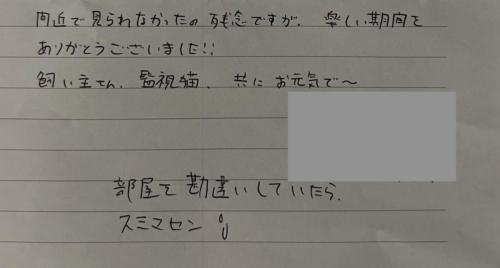 間近で見られなかったの残念ですが、楽しい期間を
ありがとうございました!!
飼い主さん、監視猫、共にお元気で〜
部屋を勘違いしていたら、
スミマセン